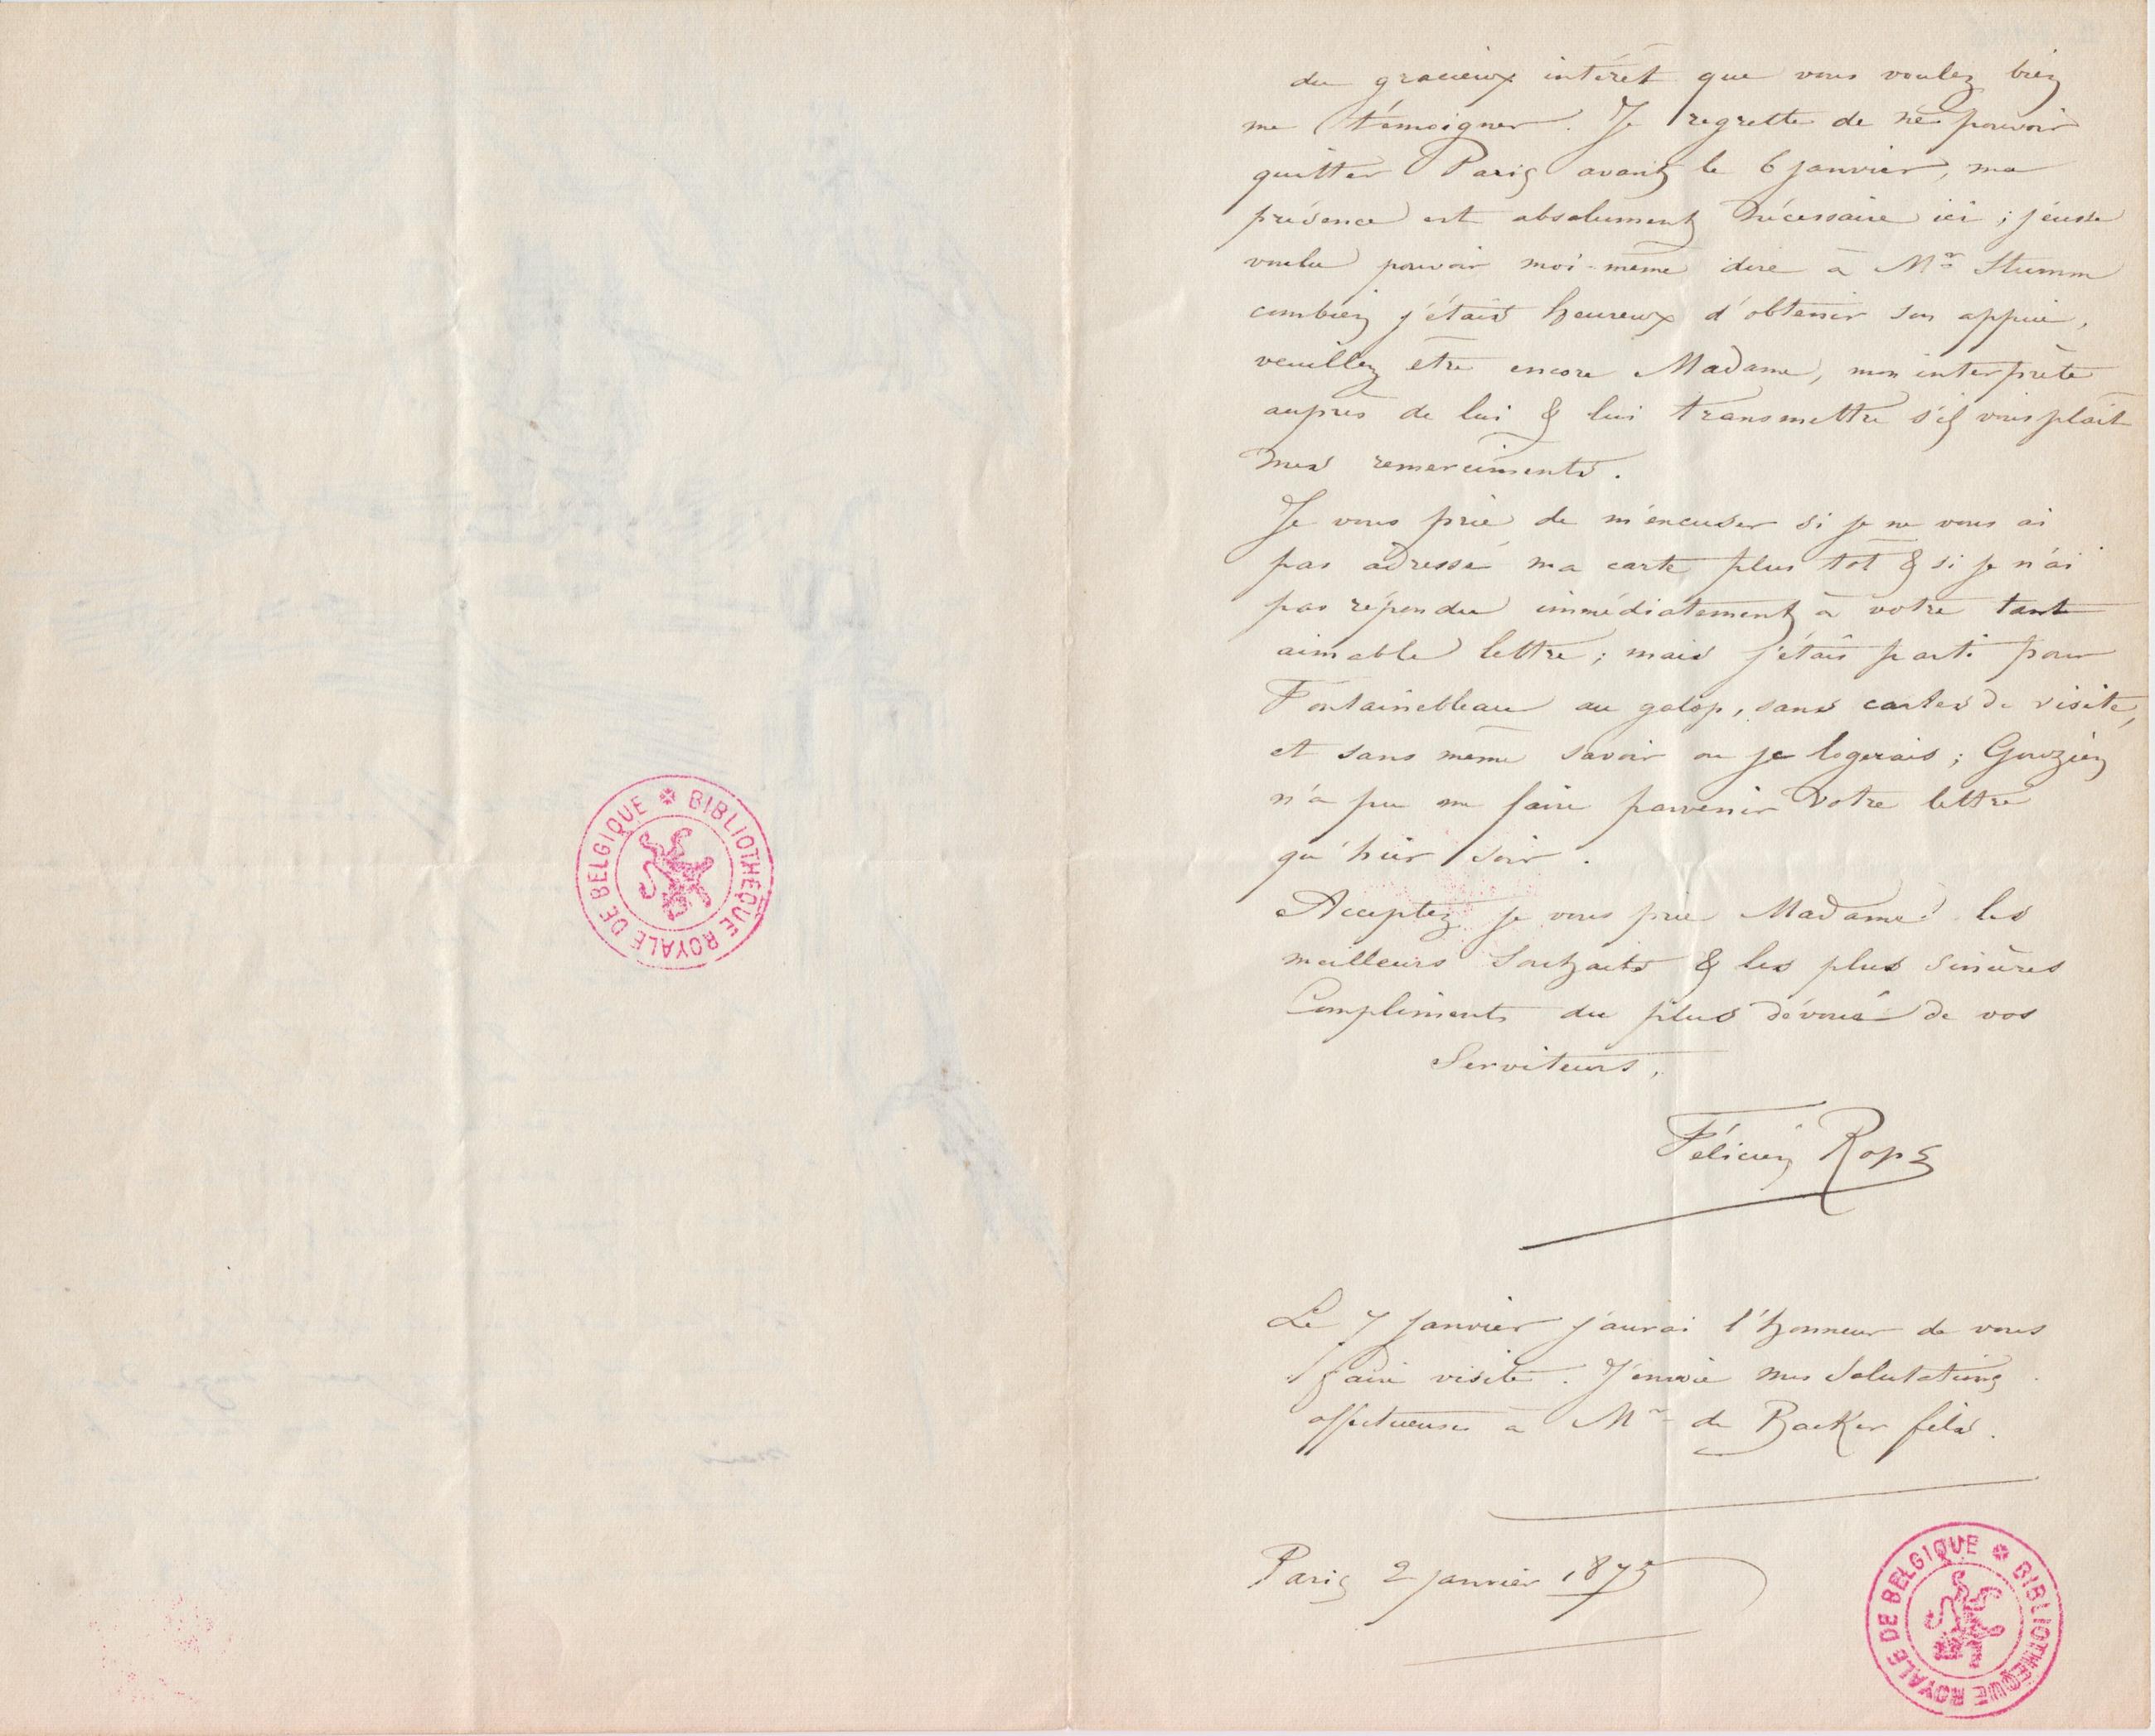 BIBLIOTHÈQUE ROYALE DE BELGIQUE
du gracieux intérêt que vous voulez bien
me témoigner. Je regrette de ne pouvoir
quitter Paris avant le 6 janvier, ma
présence est absolument nécessaire ici ; j'eusse
voulu pouvoir moi-même dire à Mr Stumm
combien j'étais heureux d'obtenir son appui,
veuillez être encore Madame, mon interprète
auprès de lui & lui transmettre s'il vous plait
mes remerciments.
Je vous prie de m'excuser si je ne vous ai
pas adressé ma carte plus tôt & si je n'ai
pas répondu immédiatement à votre tant
aimable lettre ; mais j'étais parti pour
Fontainebleau au galop, sans cartes de visite,
et sans même savoir ou je logerais ; Gouzien
n'a pu me faire parvenir votre lettre
qu'hier soir.
Acceptez je vous prie Madame les
meilleurs souhaits & les plus sincères
Compliments du plus dévoué de vos
Serviteurs.
Félicien Rops
Le 7 janvier j'aurai l'honneur de vous
faire visite. J'envoie mes salutations
affectueuses à Mr de Backer fils.
Paris 2 janvier 1875
BIBLIOTHÈQUE ROYALE DE BELGIQUE